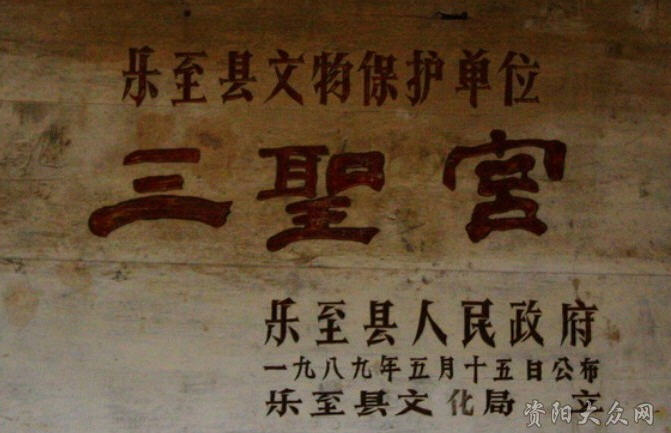 乐至县文物保护单位
三聖宮
乐至县人民政府
一九八九年五月十五日公布
乐至县文化局 立
资阳大众网